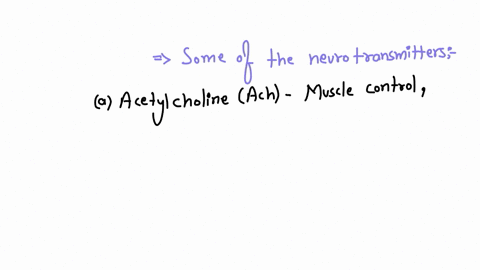 ⇒ Some of the neurotransmitters:-
(a) Acetylcholine (Ach) - Muscle control,